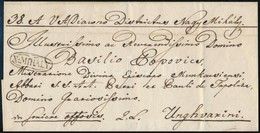 38. A V. A Diacono Districtus Nagy Mihály
Illustrissimo ac Reverendissimo Domino
Basilio Popovics
Miseratione Divina Episcopo Munkacsiensi
N.MIHÁLY
Abbati S.S.A.A. B. Seri les Banti de Tapolcza
Domino Gratiosissimo
officiosis
Unghvarini